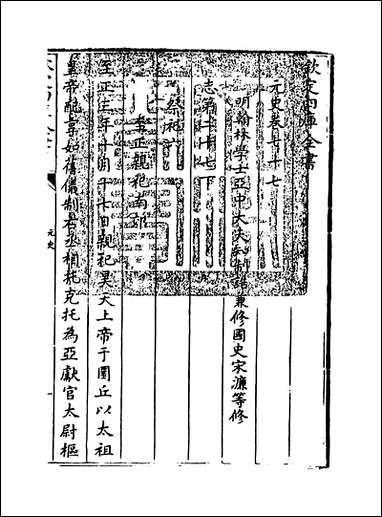 欽定四庫全書
元史卷七十七
明翰林學士亞中大夫知制誥兼修國史宋濂等修
志第二十七下
祭祀六
至正親祀南郊
至正三年十月十七日親祀昊天上帝于圜丘以太祖
皇帝配享如舊儀制右丞相托克托為亞獻官太尉樞
元史
一